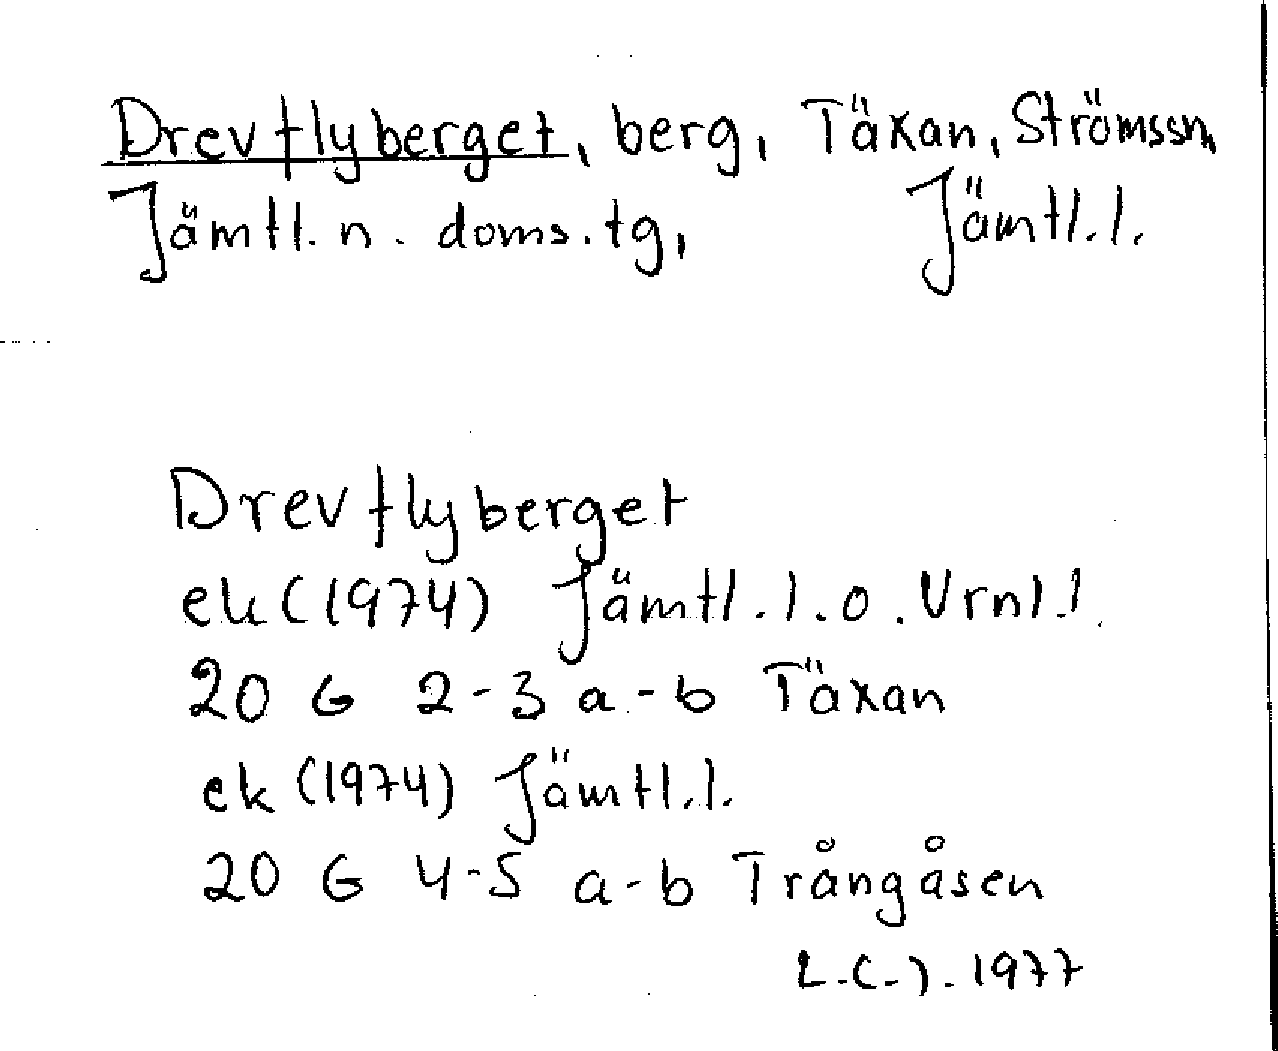 Drevflyberget, berg, Täxan, Strömssn,
Jämtl. n. doms.tg, Jämtl.l.
Drevflyberget
ek (1974) Jämtl.l.o.Vrnl.l.
20 G 2-3 a-b Täxan
ek (1974) Jämtl.l.
20 G 4-5 a-b Trångåsen
1977